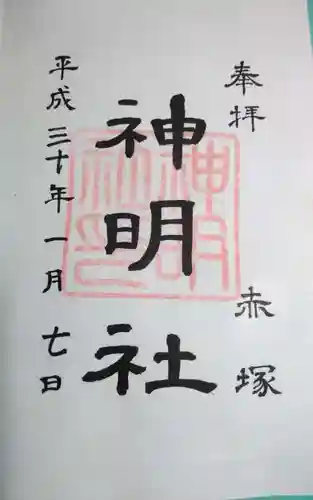 奉拝 赤塚
神明社
平成三十年一月七日
神明社印